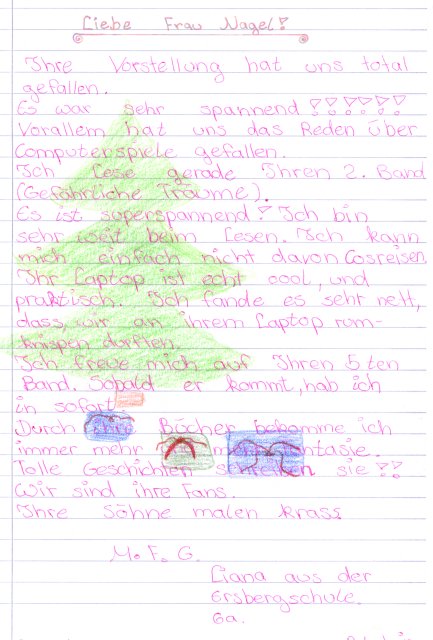 Liebe Frau Nagel!
Ihre Vorstellung hat uns total
gefallen.
Es war sehr spannend !!!!!!
Vorallem hat uns das Reden über
Computerspiele gefallen.
Ich lese gerade Ihren 2. Band
(Gefährliche Träume).
Es ist superspannend! Ich bin
sehr weit beim Lesen. Ich kann
mich einfach nicht davon losreisen.
Ihr Laptop ist echt cool, und
praktisch. Ich fande es sehr nett,
dass, wir an ihrem Laptop rum-
knispen dürften.
Ich freue mich auf Ihren 5 ten
Band. Sopald er kommt, hab ich
in sofort
Durch Ihre Bücher bekomme ich
immer mehr
Tolle Geschichten schreiben sie !!
Wir sind ihre Fans.
Ihre Söhne malen krass
M. F. G.
Liana aus der
Ersbergschule.
6a.